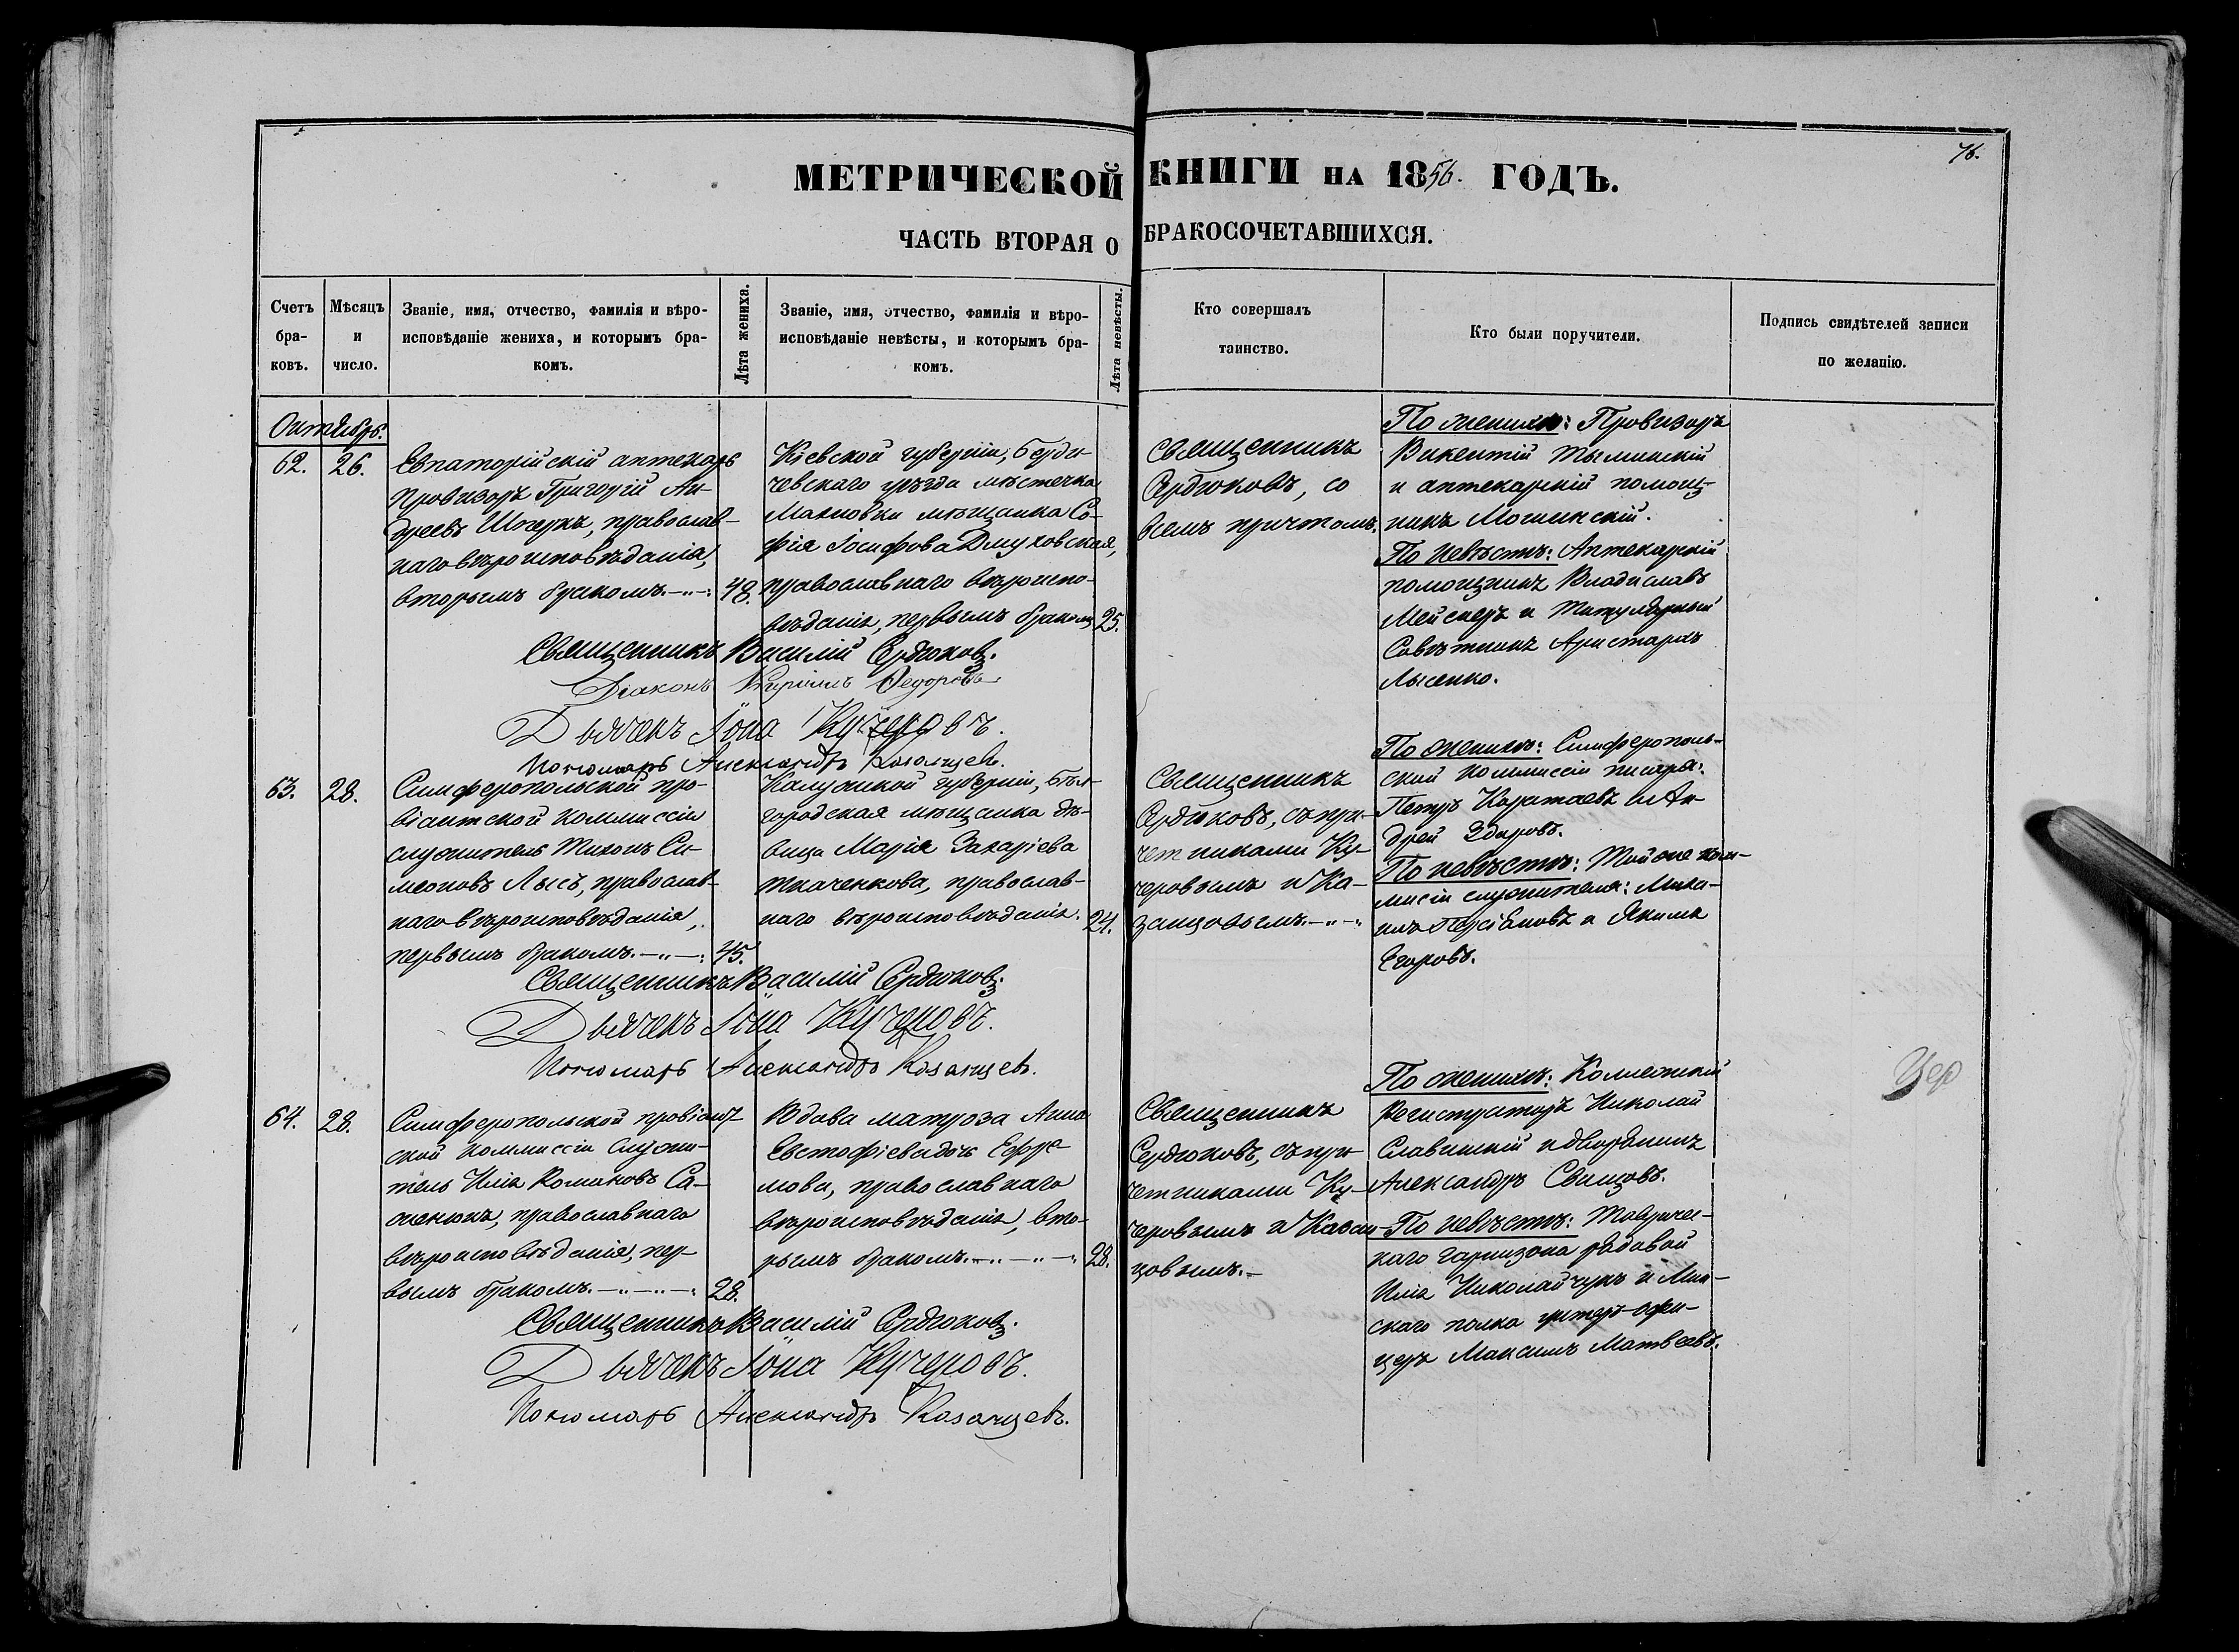 76.
МЕТРИЧЕСКОЙ КНИГИ НА 1856. ГОДЪ.
ЧАСТЬ ВТОРАЯ О БРАКОСОЧЕТАВШИХСЯ.
Счетъ бра-ковъ.
Мѣсяцъ и число.
Званіе, имя, отчество, фамилія и вѣро-
исповѣданіе жениха, и которымъ бра-
комъ.
Лѣта жениха.
Званіе, имя, отчество, фамилія и вѣро-
исповѣданіе невѣсты, и которымъ бра-
комъ.
Лѣта невѣсты.
Кто совершалъ
таинство.
Кто были поручители.
Подпись свидѣтелей записи
по желанію.
Октябрь.
62. 26.
Евпаторійскій аптекарь
Провизоръ Григорій Ан-
дреевъ, православ-
наго вѣроисповѣданія,
вторымъ бракомъ.-"-: 48.
Кіевской губерніи, Берди-
чевскаго уѣзда мѣстечка
Махновки мѣщанка Со-
фія Іосифова Длуховская,
православнаго вѣроиспо-
вѣданія, первымъ бракомъ 25.
Священникъ
Сердюковъ, со
всемъ причтомъ.
По женихѣ: Провизоръ
Викентій Тылинскій
и аптекарскій помощ-
никъ Мошинскій.
По невѣстѣ: Аптекарскій
помощникъ Владиславъ
Мейснеръ и Титулярный
Совѣтникъ Аристархъ
Лысенко.
Священникъ Василій Сердюковъ.
Діаконъ Кириллъ Федоровъ
Дьячекъ Іона Кучеровъ.
Пономарь Александръ Казанцевъ.
63. 28.
Симферопольской про-
віантской коммиссіи
служитель Тихонъ Си-
меоновъ Лысъ, православ-
наго вѣроисповѣданія,
первымъ бракомъ.-"-: 45.
Калужской губерніи, Бѣл-
городская мѣщанка дѣ-
вица Марія Захаріева
Ткаченкова, православ-
наго вѣроисповѣданія. 24.
Священникъ
Сердюковъ, съ при-
четниками Ку-
черовымъ и Ка-
занцовымъ.-"-:
По женихѣ: Симферополь-
ской коммиссіи писаря:
Петръ Каратаевъ и Ан-
дрей Здоровъ.
По невѣстѣ: Той же ком-
мисіи служителя: Миха-
илъ Персіановъ и Якимъ
Егоровъ.
Священникъ Василій Сердюковъ.
Дьячекъ Іона Кучеровъ.
Пономарь Александръ Казанцевъ.
64. 28.
Симферопольской провіант-
ской коммиссіи служи-
тель Илія Романовъ Са-
женюкъ, православнаго
вѣроисповѣданія, пер-
вымъ бракомъ.-"-"-: 28.
Вдова матроза Анна
Евстафіева дочь Ефре-
мова, православнаго
вѣроисповѣданія, вто-
рымъ бракомъ.-"-"-: 28.
Священникъ
Сердюковъ, съ при-
четниками Ку-
черовымъ и Казан-
цовымъ.-
По женихѣ: Коллежскій
Регистраторъ Николай
Славинскій и дворянинъ
Александръ Свинцовъ.
По невѣстѣ: Тавричес-
каго гарнизона рядовой
Илія Николайчукъ и Мин-
скаго полка унтеръ-офи-
церъ Максимъ Матвеевъ.
Священникъ Василій Сердюковъ.
Дьячекъ Іона Кучеровъ.
Пономарь Александръ Казанцевъ.